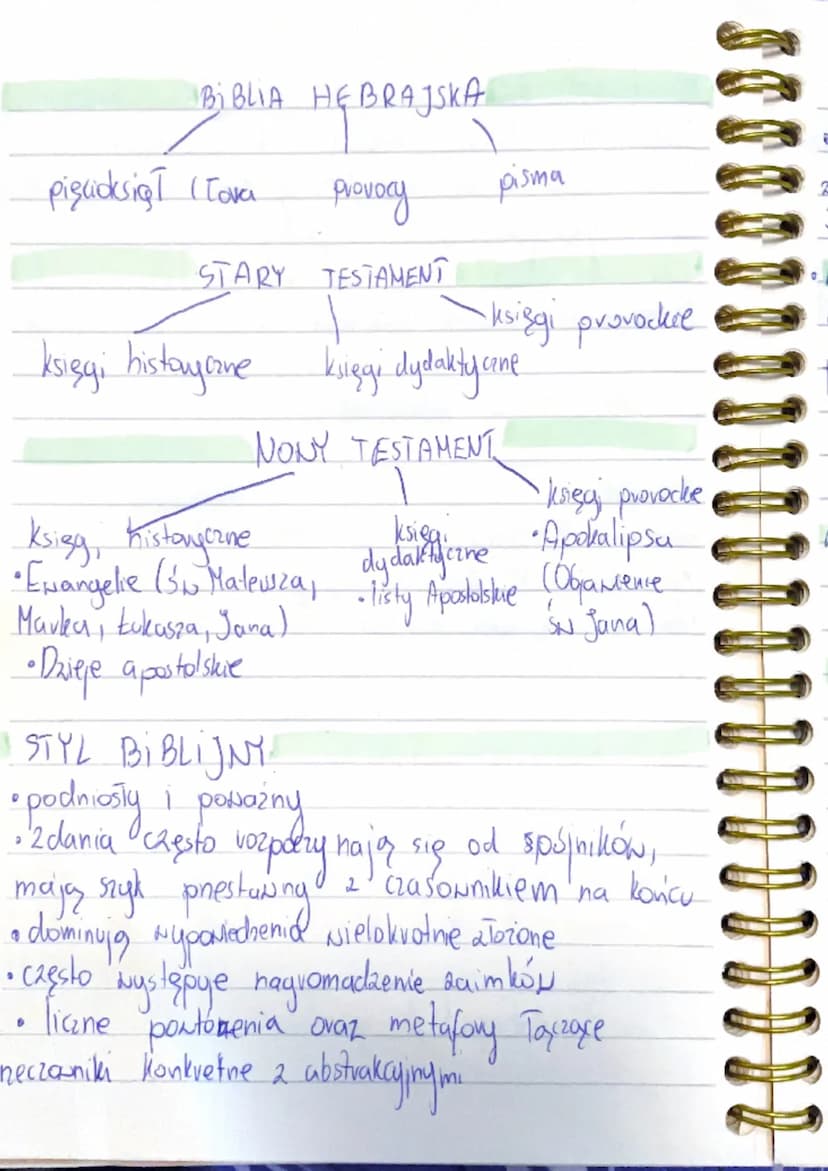 BIBLIA HEBRAJSKA
pięcioksiąg (Tora prorocy pisma
STARY TESTAMENT
księgi prorockie
księgi historyczne księgi dydaktyczne
NOWY TESTAMENT
księgi prorockie
księgi historyczne księgi dydaktyczne • Apokalipsa
• Ewangelie (św Mateusza, • listy Apostolskie (Objawienie
Marka, Łukasza, Jana) św Jana)
• Dzieje apostolskie
STYL BIBLIJNY
• podniosły i poważny
• zdania często rozpoczynają się od spójników,
mają szyk przestawny z czasownikiem na końcu
• dominują wypowiedzenia wielokrotnie złożone
• często występuje nagromadzenie zaimków
• liczne powtórzenia oraz metafory łączące
rzeczowniki konkretne z abstrakcyjnymi